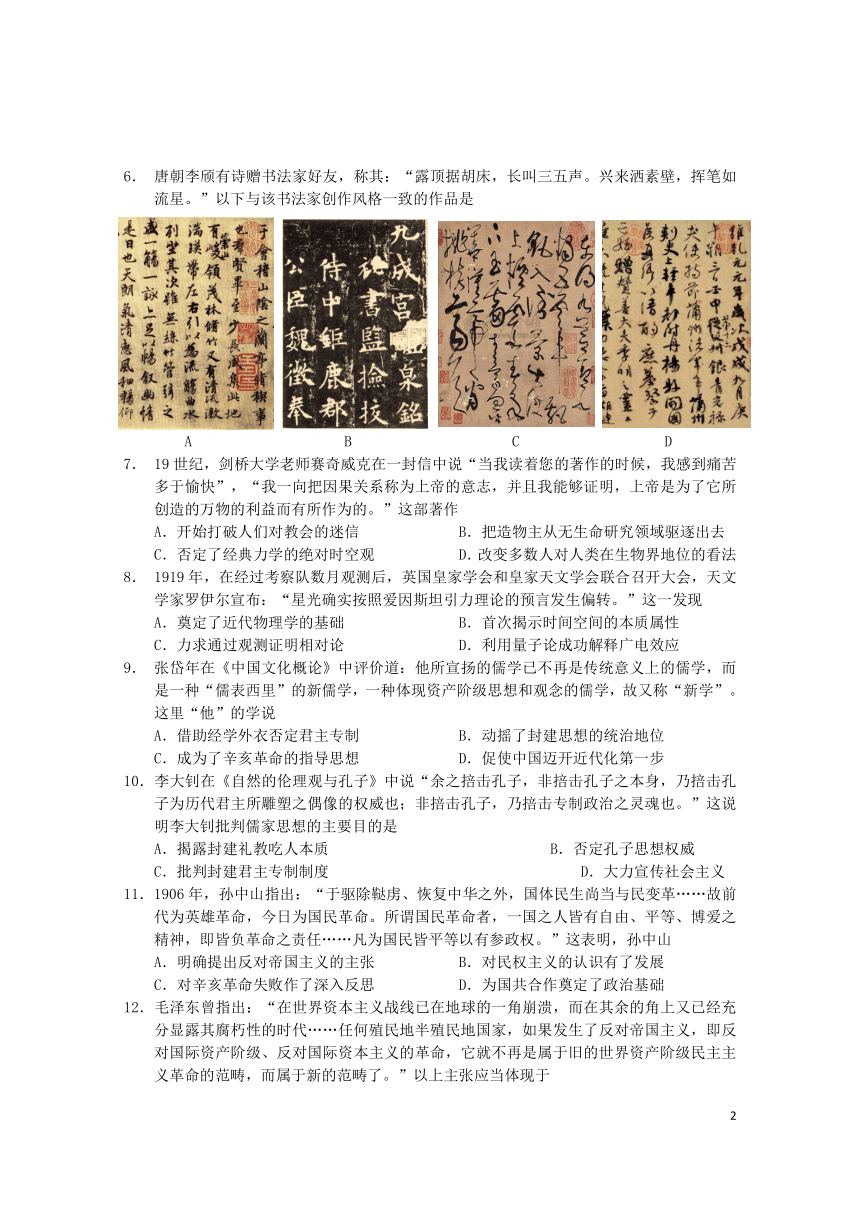 6. 唐朝李颀有诗赠书法家好友，称其：“露顶据胡床，长叫三五声。兴来洒素壁，挥笔如
流星。”以下与该书法家创作风格一致的作品是
A B C D
7. 19 世纪，剑桥大学老师赛奇威克在一封信中说“当我读着您的著作的时候，我感到痛苦
多于愉快”，“我一向把因果关系称为上帝的意志，并且我能够证明，上帝是为了它所
创造的万物的利益而有所作为的。”这部著作
A．开始打破人们对教会的迷信 B．把造物主从无生命研究领域驱逐出去
C．否定了经典力学的绝对时空观 D．改变多数人对人类在生物界地位的看法
8. 1919 年，在经过考察队数月观测后，英国皇家学会和皇家天文学会联合召开大会，天文
学家罗伊尔宣布：“星光确实按照爱因斯坦引力理论的预言发生偏转。”这一发现
A．奠定了近代物理学的基础 B．首次揭示时间空间的本质属性
C．力求通过观测证明相对论 D．利用量子论成功解释广电效应
9. 张岱年在《中国文化概论》中评价道：他所宣扬的儒学已不再是传统意义上的儒学，而
是一种“儒表西里”的新儒学，一种体现资产阶级思想和观念的儒学，故又称“新学”。
这里“他”的学说
A．借助经学外衣否定君主专制 B．动摇了封建思想的统治地位
C．成为了辛亥革命的指导思想 D．促使中国迈开近代化第一步
10．李大钊在《自然的伦理观与孔子》中说“余之掊击孔子，非掊击孔子之本身，乃掊击孔
子为历代君主所雕塑之偶像的权威也；非掊击孔子，乃掊击专制政治之灵魂也。”这说
明李大钊批判儒家思想的主要目的是
A．揭露封建礼教吃人本质 B．否定孔子思想权威
C．批判封建君主专制制度 D．大力宣传社会主义
11．1906 年，孙中山指出：“于驱除鞑虏、恢复中华之外，国体民生尚当与民变革……故前
代为英雄革命，今日为国民革命。所谓国民革命者，一国之人皆有自由、平等、博爱之
精神，即皆负革命之责任……凡为国民皆平等以有参政权。”这表明，孙中山
A．明确提出反对帝国主义的主张 B．对民权主义的认识有了发展
C．对辛亥革命失败作了深入反思 D．为国共合作奠定了政治基础
12．毛泽东曾指出：“在世界资本主义战线已在地球的一角崩溃，而在其余的角上又已经充
分显露其腐朽性的时代……任何殖民地半殖民地国家，如果发生了反对帝国主义，即反
对国际资产阶级、反对国际资本主义的革命，它就不再是属于旧的世界资产阶级民主主
义革命的范畴，而属于新的范畴了。”以上主张应当体现于
2